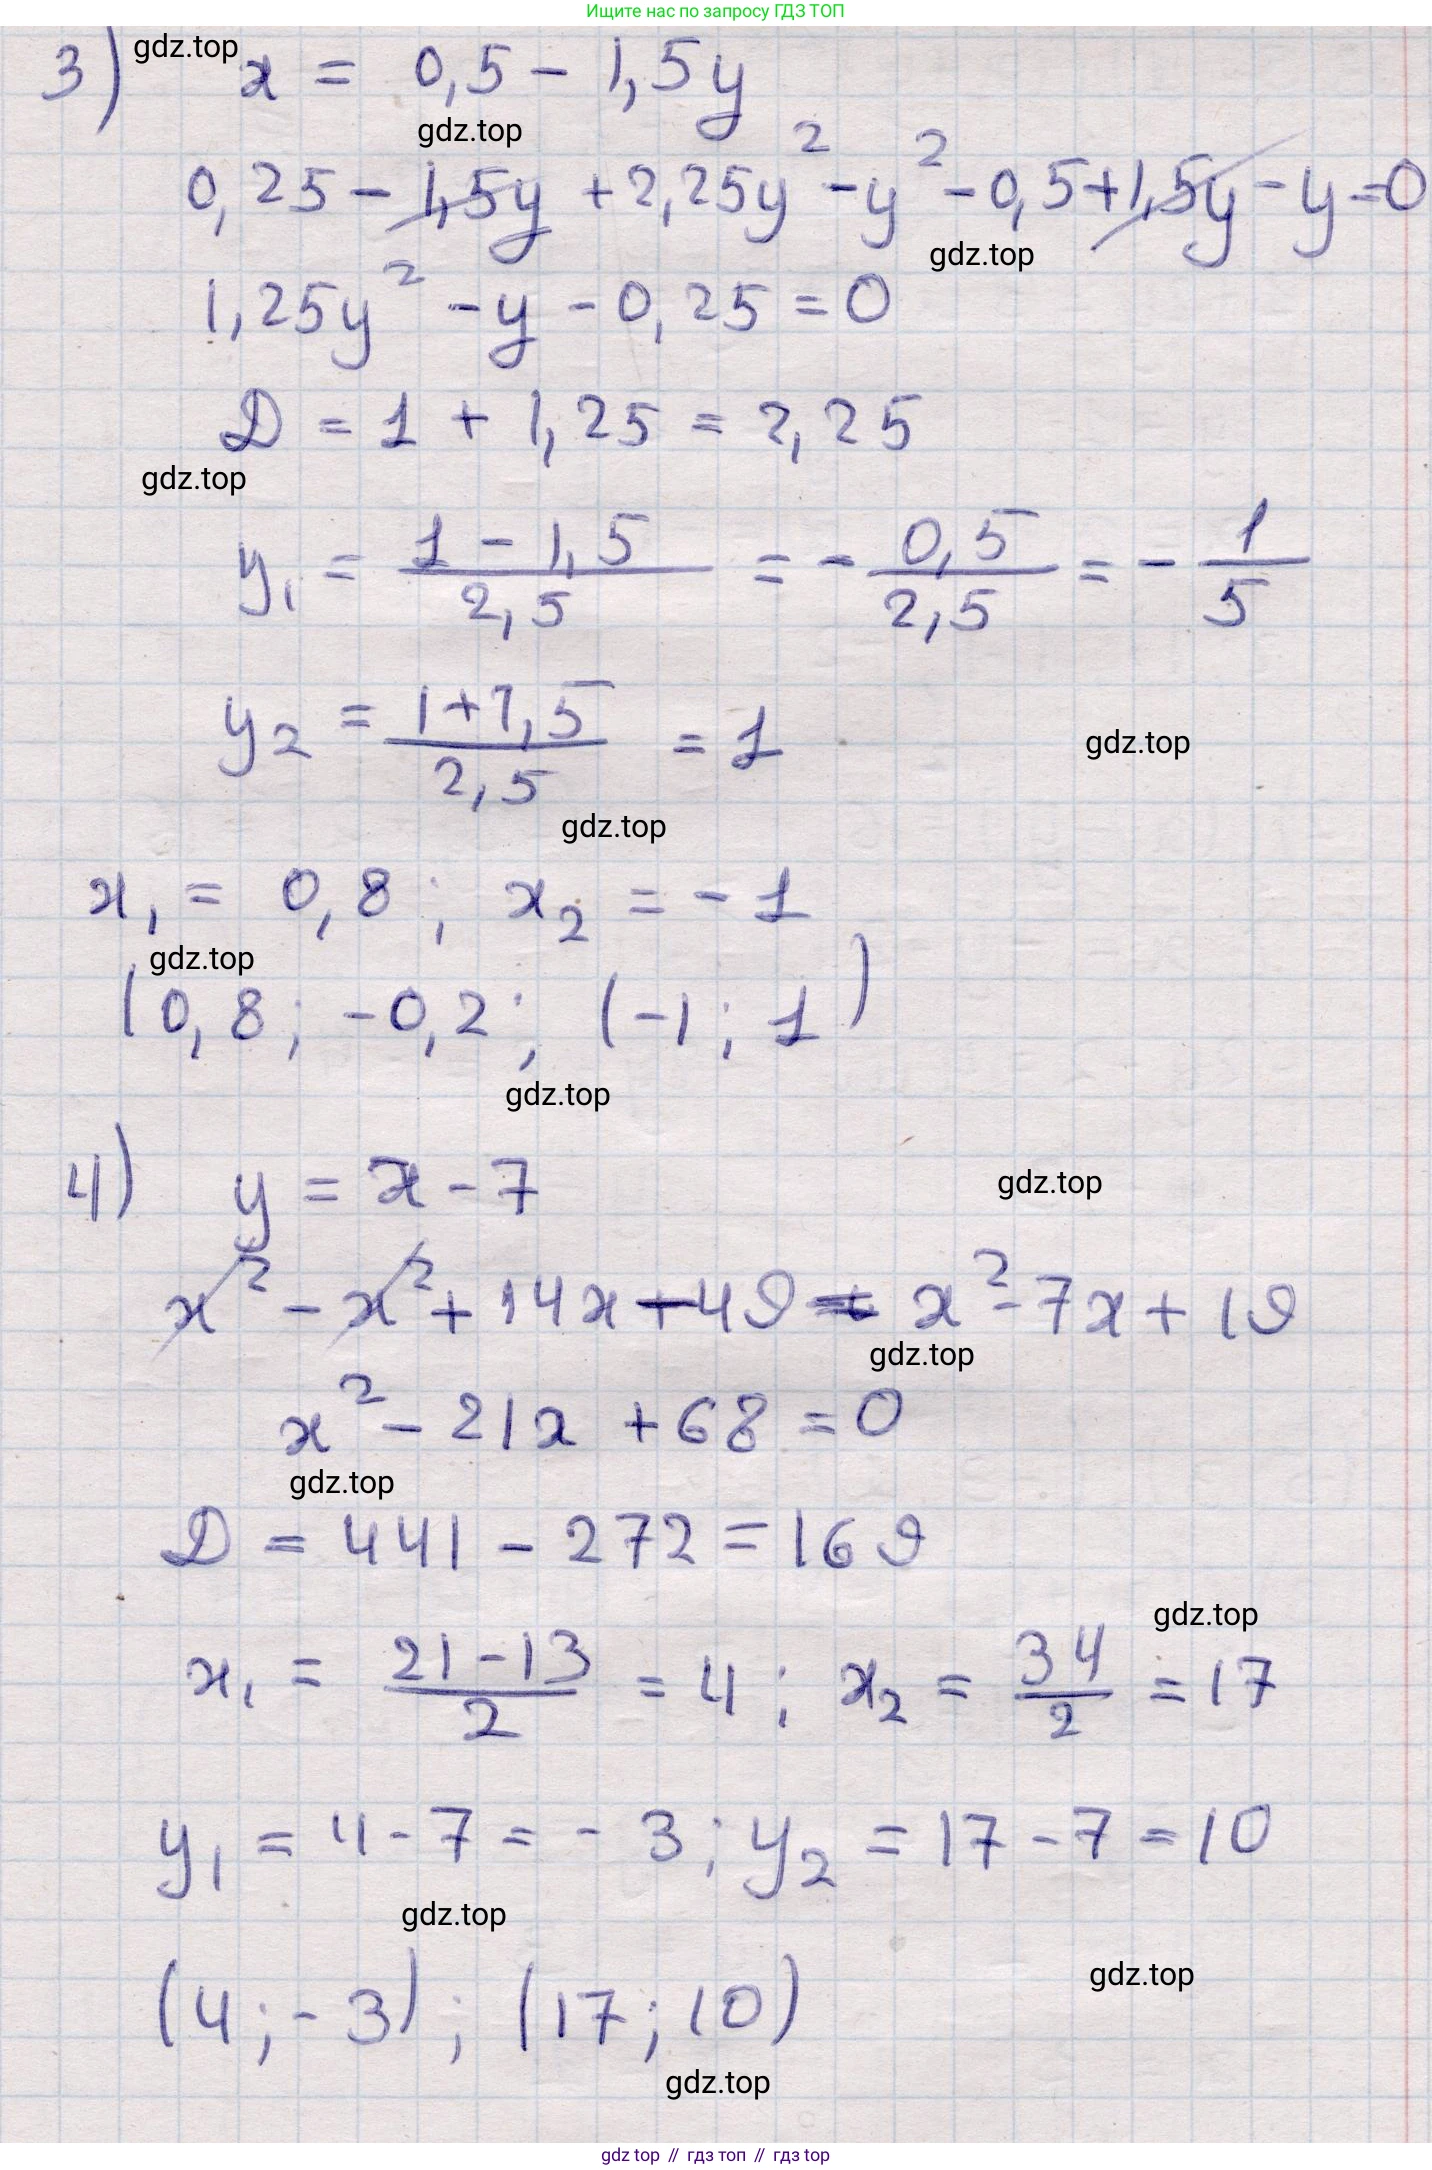 Ищите нас по запросу ГДЗ ТОП
3) gdz.top x = 0,5 - 1,5y
gdz.top
0,25 - 1,5y + 2,25y² - y² - 0,5 + 1,5y - y = 0
gdz.top
1,25y² - y - 0,25 = 0
D = 1 + 1,25 = 2,25
gdz.top
y₁ = (1 - 1,5)/2,5 = - 0,5/2,5 = - 1/5
y₂ = (1 + 1,5)/2,5 = 1
gdz.top
gdz.top
x₁ = 0,8; x₂ = -1
gdz.top
(0,8; -0,2; (-1; 1)
gdz.top
4) y = x - 7
gdz.top
x² - x² + 14x - 49 = x² - 7x + 19
gdz.top
x² - 21x + 68 = 0
gdz.top
D = 441 - 272 = 169
gdz.top
x₁ = (21 - 13)/2 = 4; x₂ = 34/2 = 17
y₁ = 4 - 7 = -3; y₂ = 17 - 7 = 10
gdz.top
gdz.top
(4; -3); (17; 10)
gdz.top
gdz top // гдз топ // гдз top